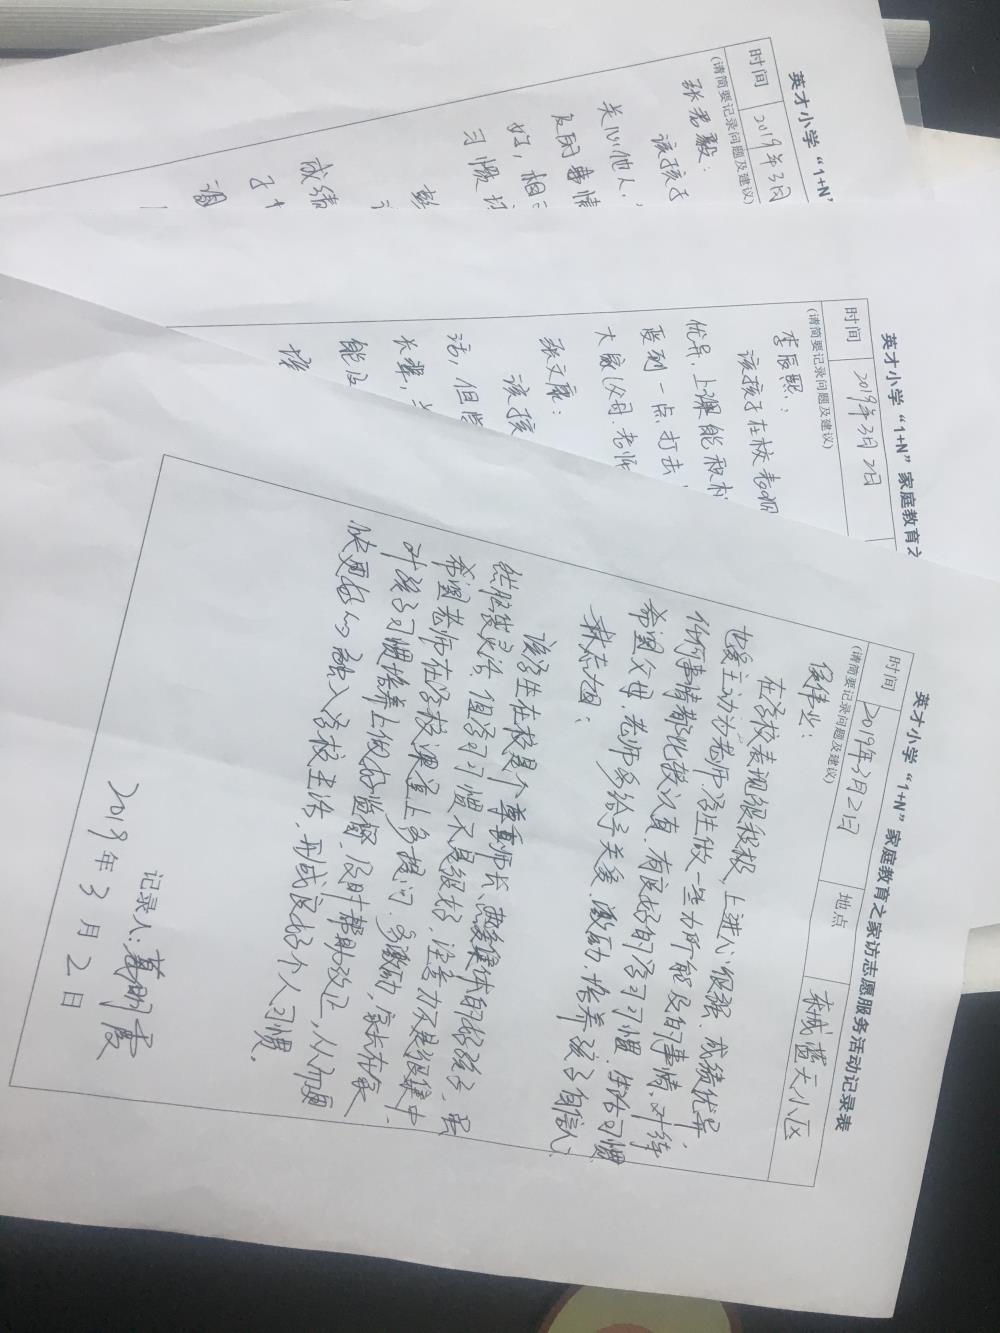 英才小学“1+N”
时间 2019年3月
(请简要记录问题及建议)
张君毅：
该孩子
关心他人，
好，相
习惯
成绩
英才小学“1+N”家庭教育之
时间 2019年3月2日
(请简要记录问题及建议)
李辰熙：
该孩子在校表现
优异，上课能积极
受到一点打击
大家（父母、老师
张文康：
该孩
活，但
长辈，
能及
英才小学“1+N”家庭教育之家访志愿服务活动记录表
时间 2019年3月2日 地点 东城蓝天小区
(请简要记录问题及建议)
侯伟业：
在学校表现很积极，上进心很强，成绩优异，
也爱主动为老师、学生做一些力所能及的事情，对待
任何事情都比较认真，有良好的学习习惯、生活习惯
希望父母、老师多给予关爱、激励，培养孩子自信心。
林志旭：
该学生在校是个尊重师长、热爱集体的好孩子，虽
然脑袋灵活，但学习习惯不是很好，注意力不是很集中，
希望老师在学校课堂上多提问，多激励，家长在家
对孩子习惯培养上做好监督，及时帮助改正，从而更
快更好的融入学校生活，形成良好个人习惯。
记录人：葛明霞
2019年3月2日